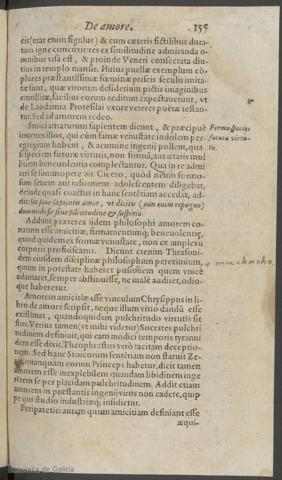 De amore. 155
eit (erat enim figulus) & cum cæteris fictilibus dura-
tam igne concoxit: res ex similitudine admiranda o-
mnibus visa est, & proinde Veneri consecrata diu-
tius in templo mansit. Huius puellæ exemplum cō-
plures præstantissimæ fœminæ priscis seculis imita-
tæ sunt, quæ virorum desiderium pictis imaginibus
emollitæ, facilius eorum reditum expectauerunt, vt
de Laodamia Protesilai vxore veteres poëtæ testan-
tur. Sed ad amorem redeo.
Stoici amaturum sapientem dicunt, & præcipuè
iuuenes illos, qui cùm suma venustate indolem per-
egregiam habent, & acumine ingenij pollent, qua-
si speciem futuræ virtutis, non formā, aut ætatis mol
lium beneuolentia complectantur. Qua in re admi-
rari se summopere ait Cicero, quòd nemo formo-
sum senem aut informem adolescentem diligebat,
deinde quasi coactus in hanc sententiā accedat, ad-
dit: sit sanè sapientis amor, vt dicitis (non enim repugno)
dummodo sit sine solicitudine & suspirio.
Forma species
futuræ virtu-
tis.
Addunt præterea ijdem philosophi amorem co-
natum esse amicitiæ, firmamentumq; beneuolentiæ,
quod quidem ex formæ venustate, non ex amplexu
corporis proficiscatur. Dicunt etenim Thrasoni-
dem eiusdem disciplinæ philosophum peregrinium,
quum in potestate haberet pusionem quem vnicè
adamaret, semper abstinuisse, ne malè audiret, odio-
que haberetur.
muchacho.
Amorem amicitiæ esse vinculum Chrysippus in li-
bro de amore scripsit, neque illum vitio dandū esse
existimat, quandoquidem pulchritudo virtutis sit
flos. Verùm tamen (vt mihi videtur) Socrates pulchri
tudinem definiuit, qui eam modici temporis tyranni
dem esse dixit. Theophrastus verò tacitam deceptio-
nem. Sed hanc Stoicorum sentētiam non statuit Ze-
no, quanquam eorum Princeps habetur, dicit tamen
amorem esse inexplebilem quandam libidinem inge
nerem se per placidam pulchritudinem. Addit etiam
amorem in præstantis ingenij viros non cadere, quip
pe qui studio industriæq; insidietur.
Peripatetici autem quum amicitiam definiant esse
æqui-
Biblioteca de Galicia